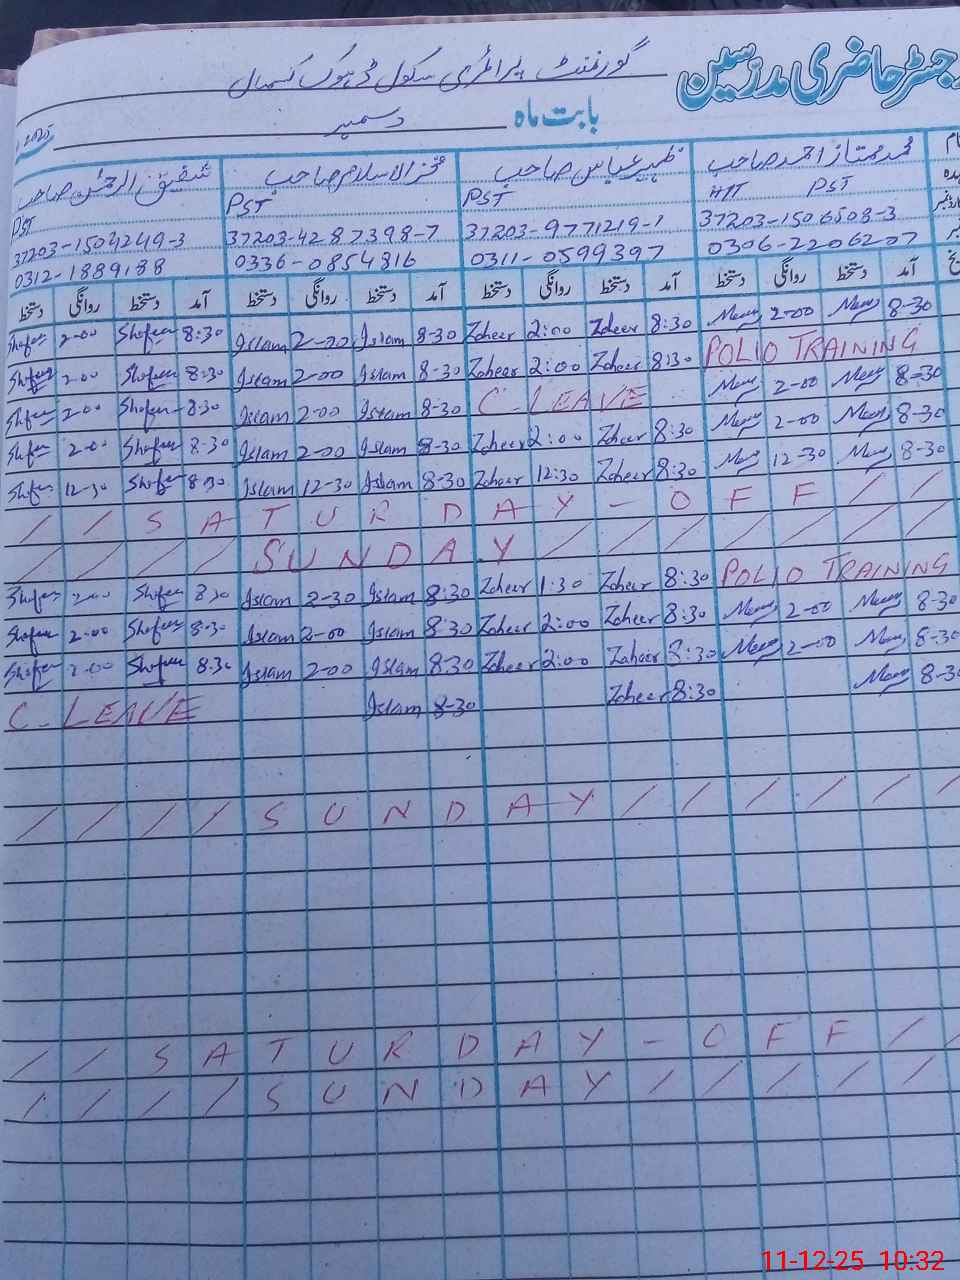 رجسٹر حاضری مدرسین
گورنمنٹ پرائمری سکول ڈھوک کسمال
بابت ماہ دسمبر 2025
محمد ممتاز احمد صاحب ظہیر عباس صاحب فخر الاسلام صاحب شفیق الرحمن صاحب
HTT PST PST PST PST
37203-1506508-3 37203-9771219-1 37203-4287398-7 37203-1504249-3
0306-2206207 0311-0599397 0336-0854816 0312-1889188
آمد دستخط روانگی دستخط آمد دستخط روانگی دستخط آمد دستخط روانگی دستخط آمد دستخط روانگی دستخط
Shafeeq 2-00 Shafeeq 8:30 Islam 2-00 Islam 8-30 Zaheer 2:00 Zaheer 8:30 2-00 8-30
Shafeeq 2-00 Shafeeq 8:30 Islam 2-00 Islam 8-30 Zaheer 2:00 Zaheer 8:30 POLIO TRAINING
Shafeeq 2-00 Shafeeq 8-30 Islam 2-00 Islam 8-30 C-LEAVE 2-00 8-30
Shafeeq 2-00 Shafeeq 8-30 Islam 2-00 Islam 8-30 Zaheer 2:00 Zaheer 8:30 2-00 8-30
Shafeeq 12-30 Shafeeq 8-30 Islam 12-30 Islam 8-30 Zaheer 12:30 Zaheer 8:30 12-30 8-30
/ / S A T U R D A Y - O F F / /
/ / / / S U N D A Y / / / / / /
Shafeeq 2-00 Shafeeq 8-30 Islam 2-30 Islam 8:30 Zaheer 1:30 Zaheer 8:30 POLIO TRAINING
Shafeeq 2-00 Shafeeq 8-30 Islam 2-00 Islam 8:30 Zaheer 2:00 Zaheer 8:30 2-00 8-30
Shafeeq 2-00 Shafeeq 8.30 Islam 2-00 Islam 8:30 Zaheer 2:00 Zaheer 8:30 2-00 8-30
C-LEAVE Islam 8-30 Zaheer 8:30 8-30
/ / / / S U N D A Y / / / / / /
/ / S A T U R D A Y - O F F / /
/ / / / S U N D A Y / / / / /
11-12-25 10:32